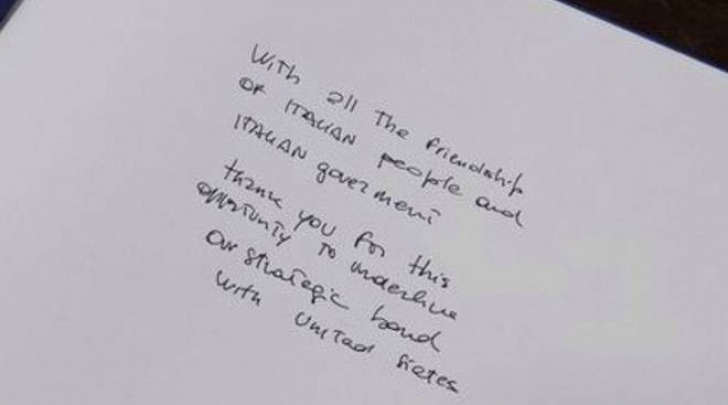 With all the friendship
OF ITALIAN people and
ITALIAN goverment
thank you for this
opportunity to underline
our strategic bond
with United States